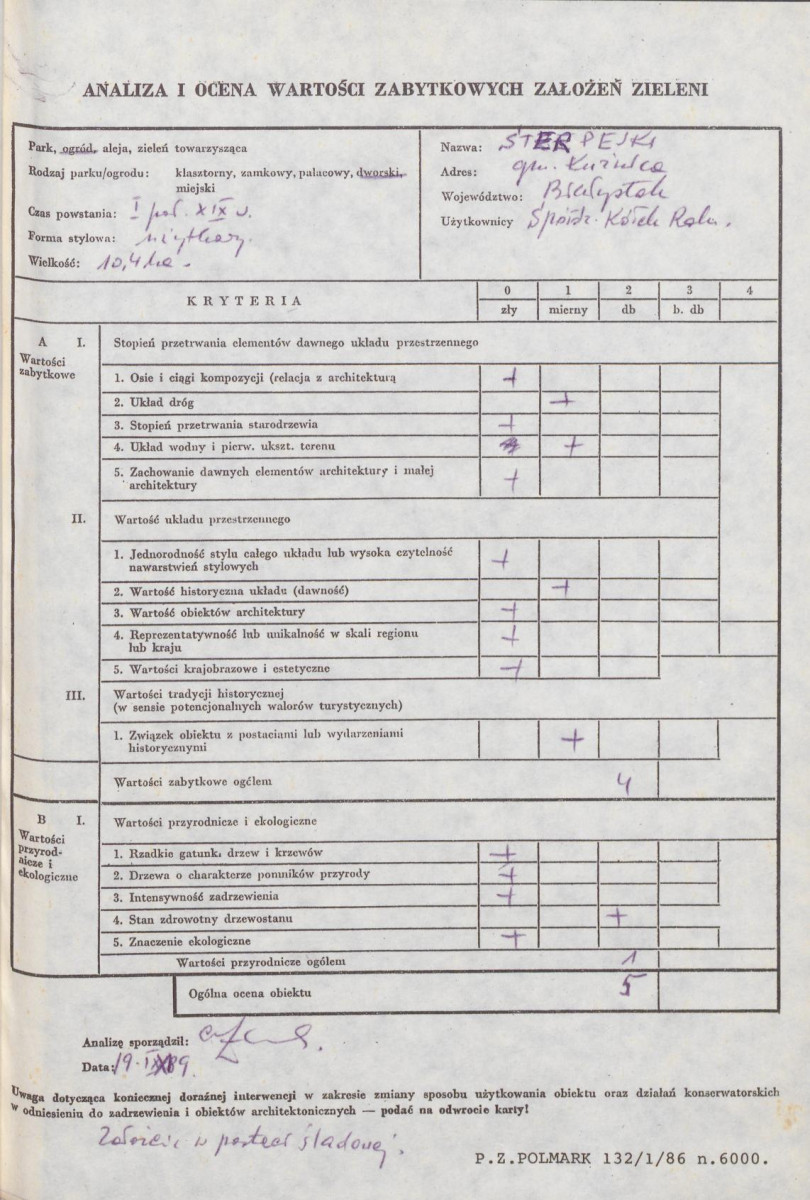 ANALIZA I OCENA WARTOŚCI ZABYTKOWYCH ZAŁOŻEŃ ZIELENI
Park, ogród, aleja, zieleń towarzysząca
Rodzaj parku/ogrodu: klasztorny, zamkowy, pałacowy, dworski,
miejski
Czas powstania: I poł. XIX w.
Forma stylowa: użytkowy.
Wielkość: 10,4 ha.
Nazwa: STERPEJKI
Adres: gm. Kuźnica
Województwo: Białystok
Użytkownicy Spółdz. Kółek Roln.
KRYTERIA
0 1 2 3 4
zły mierny db b. db
A I. Stopień przetrwania elementów dawnego układu przestrzennego
Wartości
zabytkowe
1. Osie i ciągi kompozycji (relacja z architekturą +
2. Układ dróg +
3. Stopień przetrwania starodrzewia +
4. Układ wodny i pierw. ukszt. terenu +
5. Zachowanie dawnych elementów architektury i małej
architektury +
II. Wartość układu przestrzennego
1. Jednorodność stylu całego układu lub wysoka czytelność
nawarstwień stylowych +
2. Wartość historyczna układu (dawność) +
3. Wartość obiektów architektury +
4. Reprezentatywność lub unikalność w skali regionu
lub kraju +
5. Wartości krajobrazowe i estetyczne +
III. Wartości tradycji historycznej
(w sensie potencjonalnych walorów turystycznych)
1. Związek obiektu z postaciami lub wydarzeniami
historycznymi +
Wartości zabytkowe ogólem 4
B I. Wartości przyrodnicze i ekologiczne
Wartości
przyrod-
nicze i
ekologiczne
1. Rzadkie gatunki drzew i krzewów +
2. Drzewa o charakterze pomników przyrody +
3. Intensywność zadrzewienia +
4. Stan zdrowotny drzewostanu +
5. Znaczenie ekologiczne +
Wartości przyrodnicze ogólem 1
Ogólna ocena obiektu 5
Analizę sporządził:
Data: 19.
Uwaga dotycząca koniecznej doraźnej interwencji w zakresie zmiany sposobu użytkowania obiektu oraz działań konserwatorskich
w odniesieniu do zadrzewienia i obiektów architektonicznych — podać na odwrocie karty!
w postaci śladowej.
P.Z.POLMARK 132/1/86 n.6000.